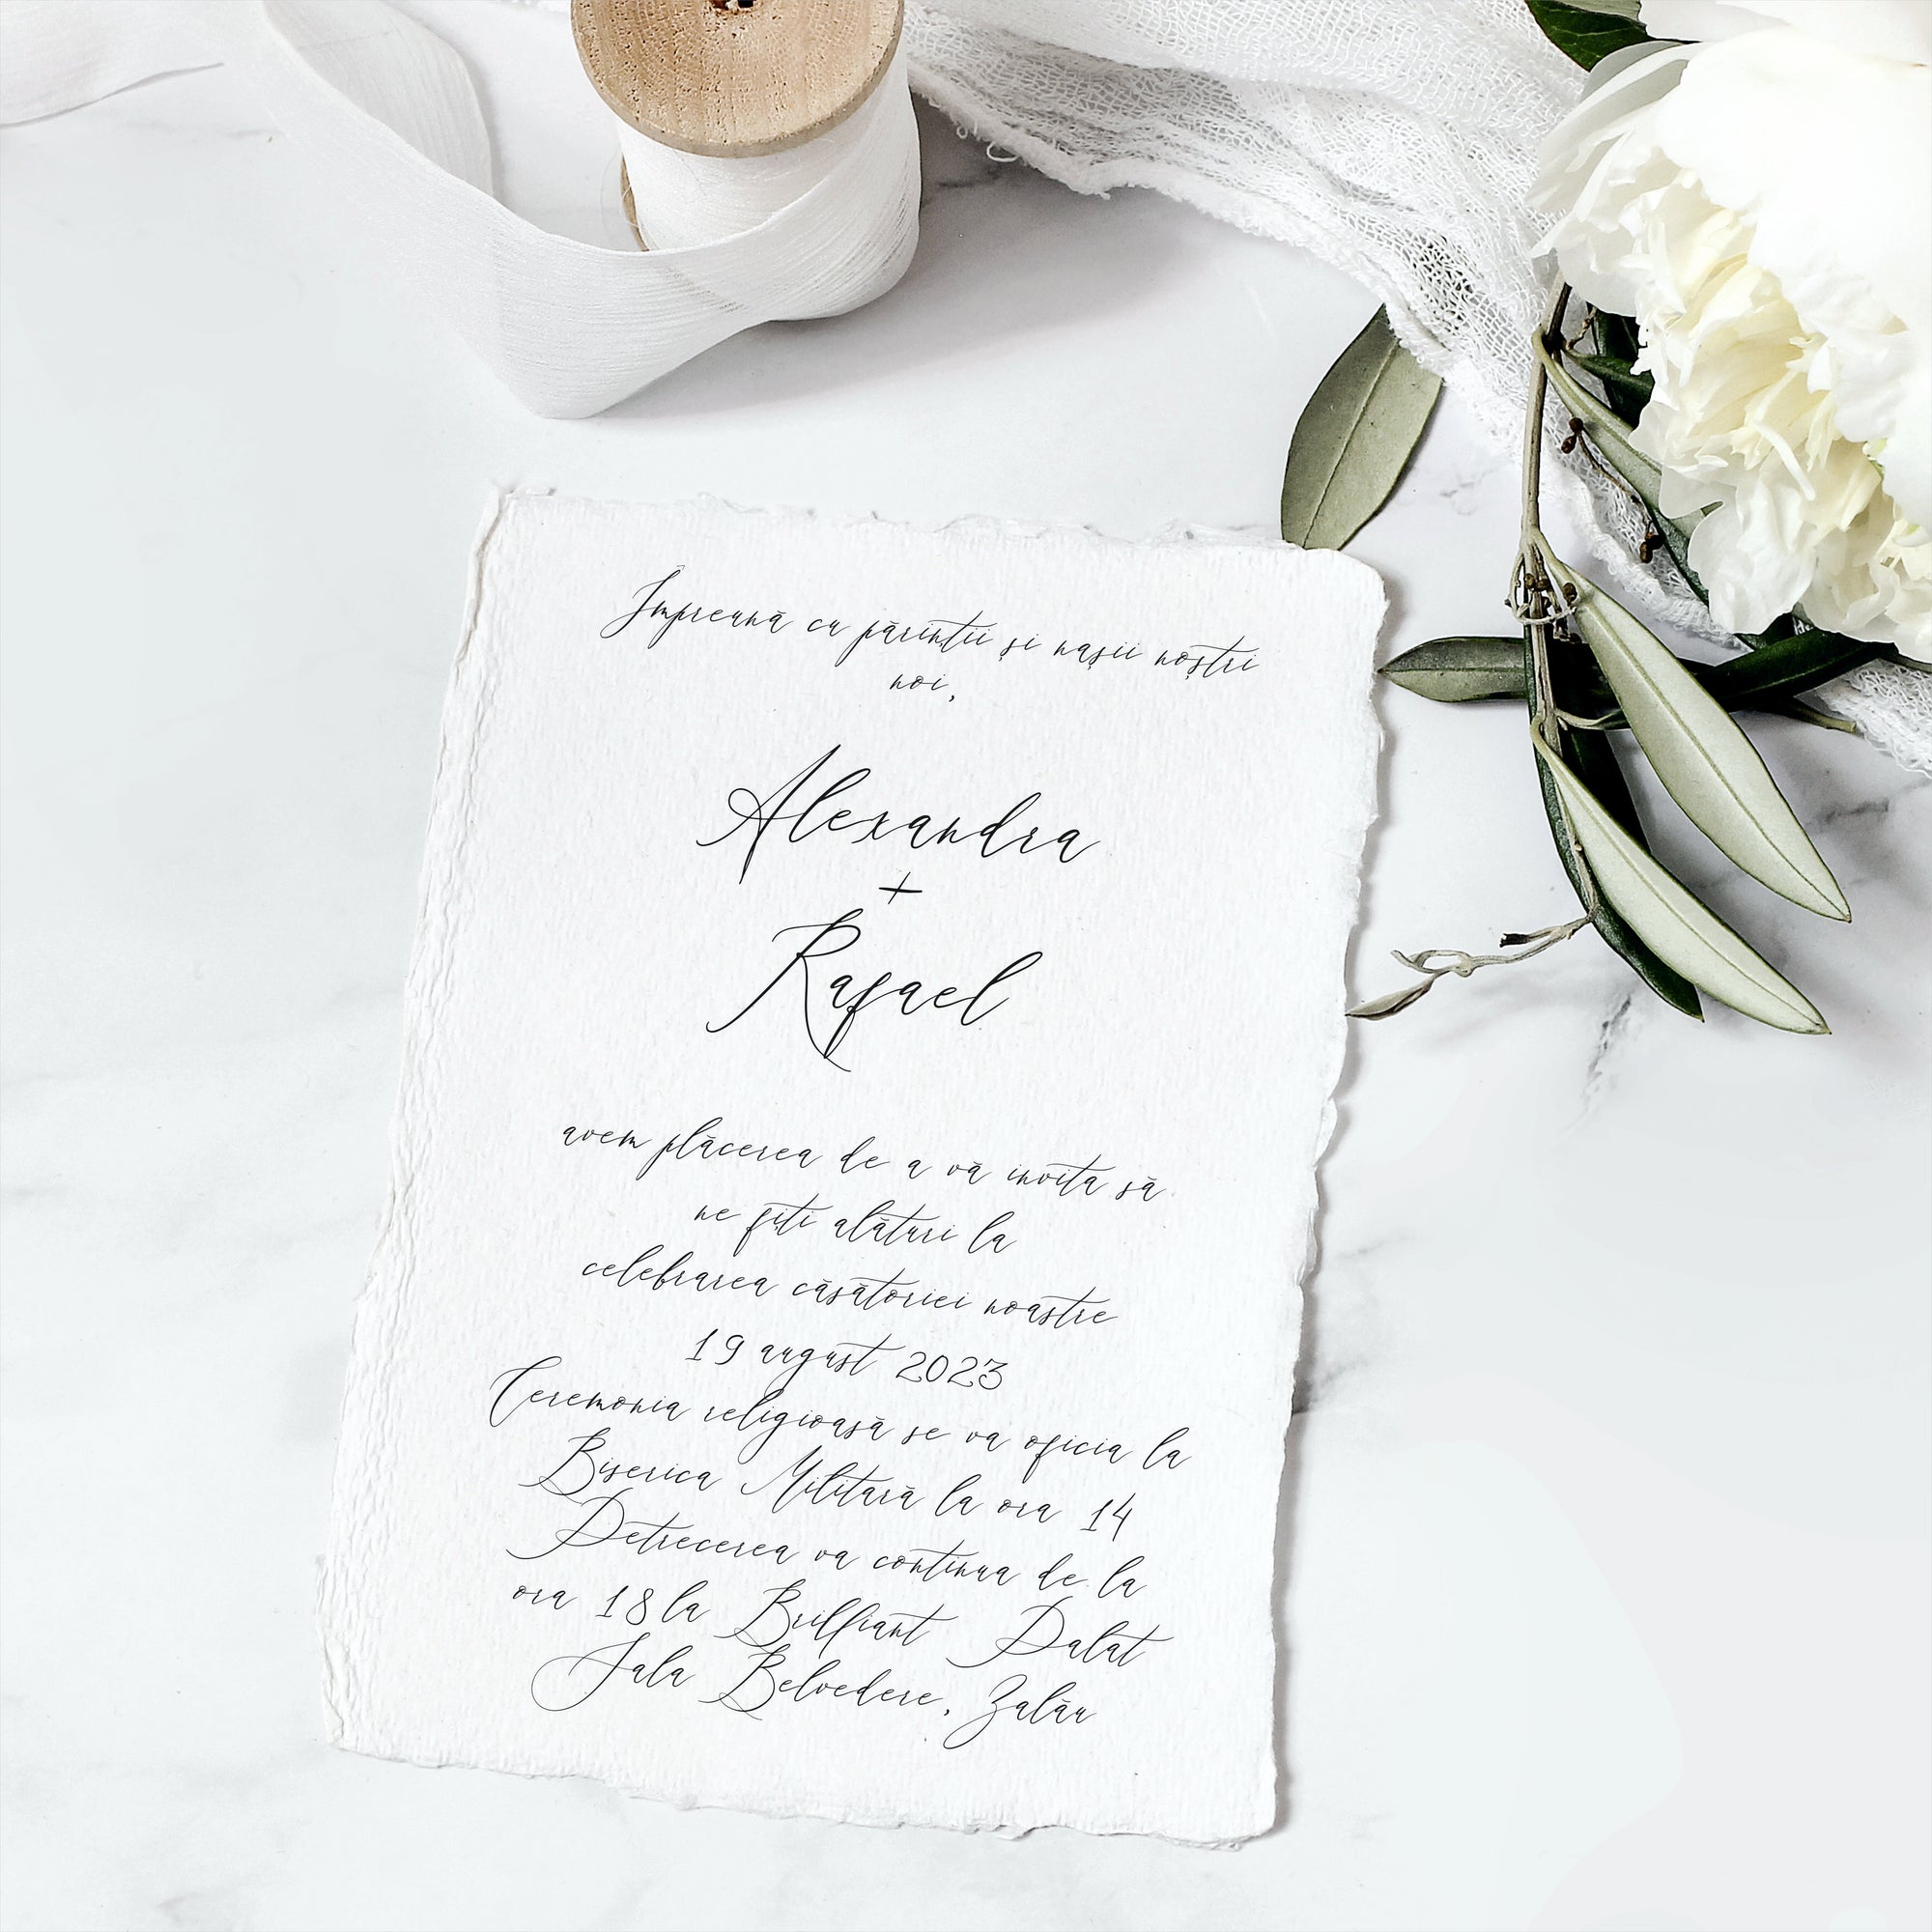 Împreună cu părinții și nașii noștri
noi,
Alexandra
+
Rafael
avem plăcerea de a vă invita să
ne fiți alături la
celebrarea căsătoriei noastre
19 august 2023
Ceremonia religioasă se va oficia la
Biserica Militară la ora 14
Petrecerea va continua de la
ora 18 la Brilliant Palat
Sala Belvedere, Zalău